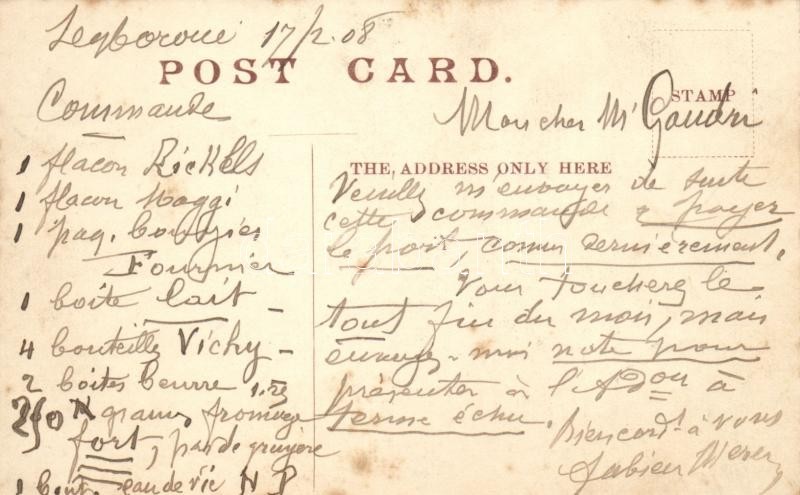 17/2.08
POST CARD.
STAMP
Commande
Mon cher Mr
THE ADDRESS ONLY HERE
1 flacon Pickels
1 flacon Maggi
1 paq. bougies
Fournier
1 boîte lait -
4 bouteille Vichy -
2 boîtes beurre 1.25
250 grams fromage
fort, pas de gruyère
1 bout. eau de vie
Veuillez m'envoyer de suite
cette commande & payer
le port, comme dernièrement.
Vous toucherez le
tout fin du mois, mais
envoyez-moi note pour
présenter à l'Adon à
terme échu.
Bien cordt à vous
Fabien